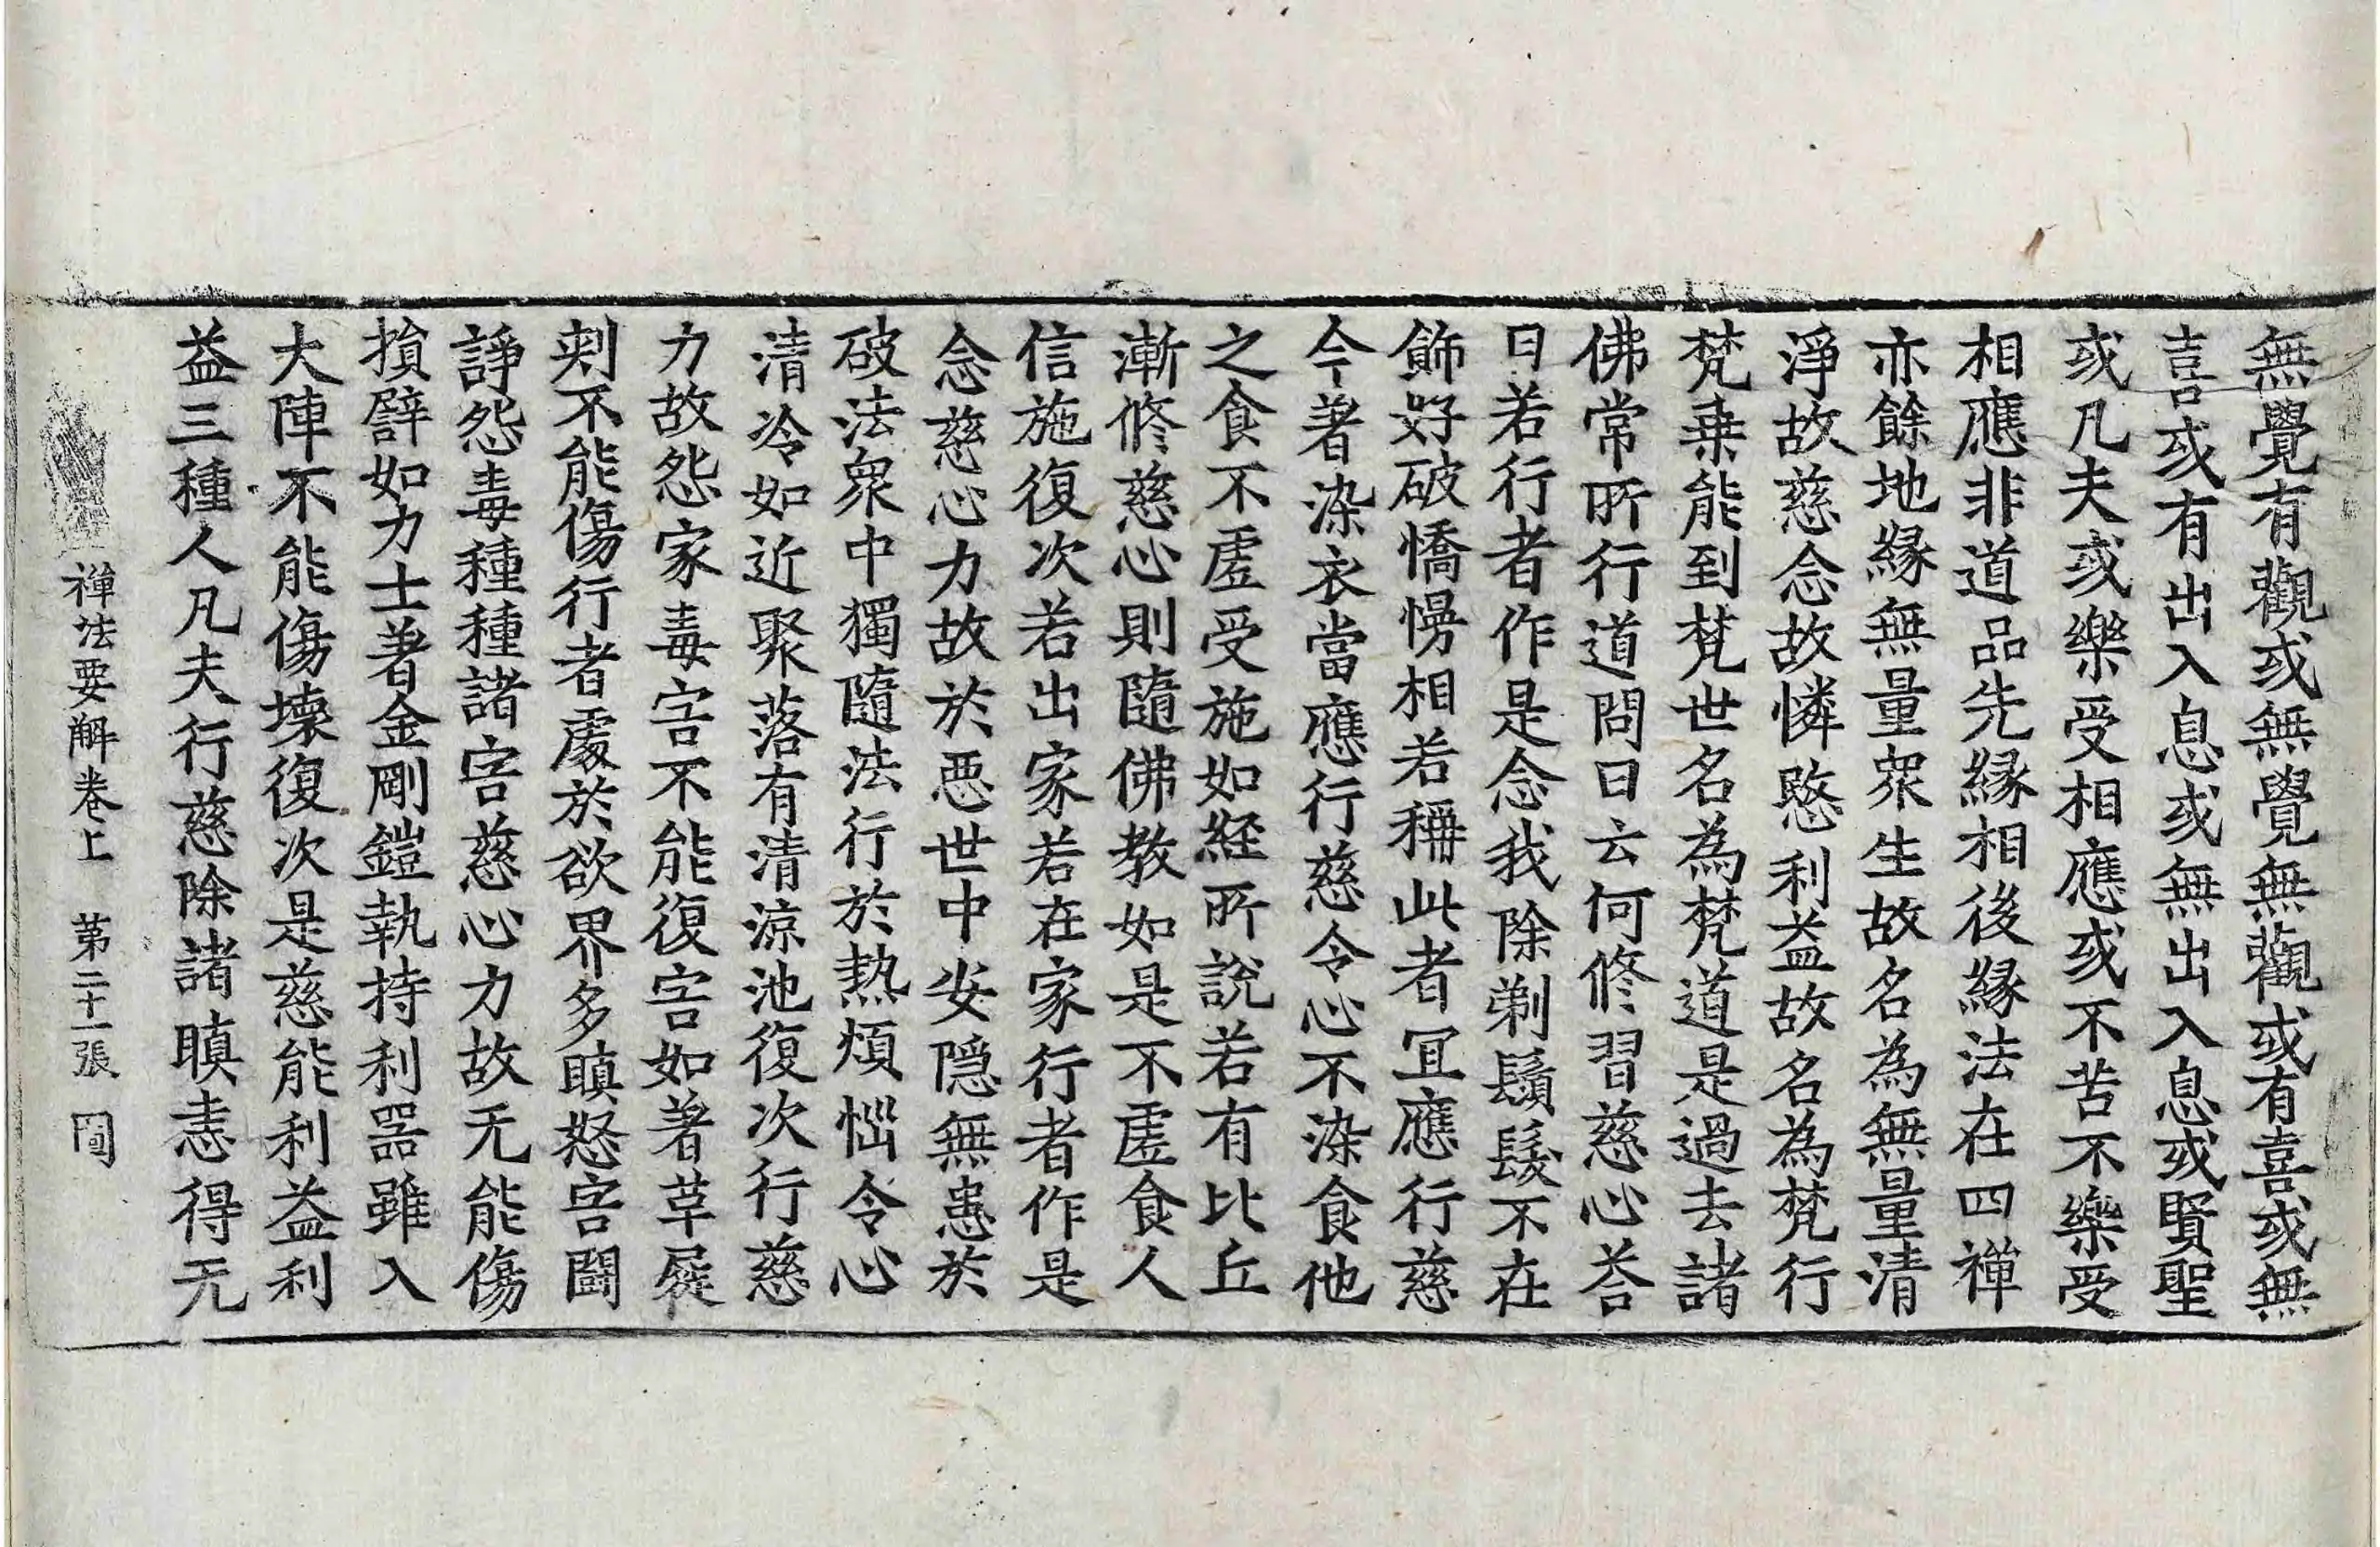 無覺有觀或無覺無觀或有喜或無
喜或有出入息或無出入息或賢聖
或凡夫或樂受相應或不苦不樂受
相應非道品先緣相後緣法在四禪
亦餘地緣無量衆生故名為無量清
淨故慈念故憐愍利益故名為梵行
梵乗能到梵世名為梵道是過去諸
佛常所行道問曰云何修習慈心荅
曰若行者作是念我除剃鬚髮不在
飾好破憍慢相若稱此者冝應行慈
今著染衣當應行慈令心不染食他
之食不虛受施如經所說若有比丘
漸修慈心則隨佛教如是不虛食人
信施復次若出家若在家行者作是
念慈心力故於惡世中安隱無患於
破法衆中獨隨法行於熱煩惱令心
清冷如近聚落有清涼池復次行慈
力故怨家毒害不能復害如著革屣
刺不能傷行者處於欲界多瞋怒害鬪
諍怨毒種種諸害慈心力故无能傷
損譬如力士著金剛鎧執持利器雖入
大陣不能傷壞復次是慈能利益利
益三種人凡夫行慈除諸瞋恚得无
禪法要解卷上 苐二十一張